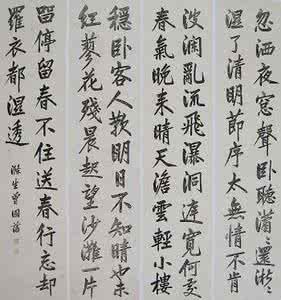 忽洒夜窓聲臥聽瀟〻還淅〻
濕了清明節序太無情不肯
澗亂流飛瀑洞達寬何
春氣晚来晴天澹雲輕小樓
穩臥客人歎明日不知晴也未
紅蓼花殘晨起望沙灘一片
停留春不住送春行忘却
羅衣都濕透
滌生曾國藩